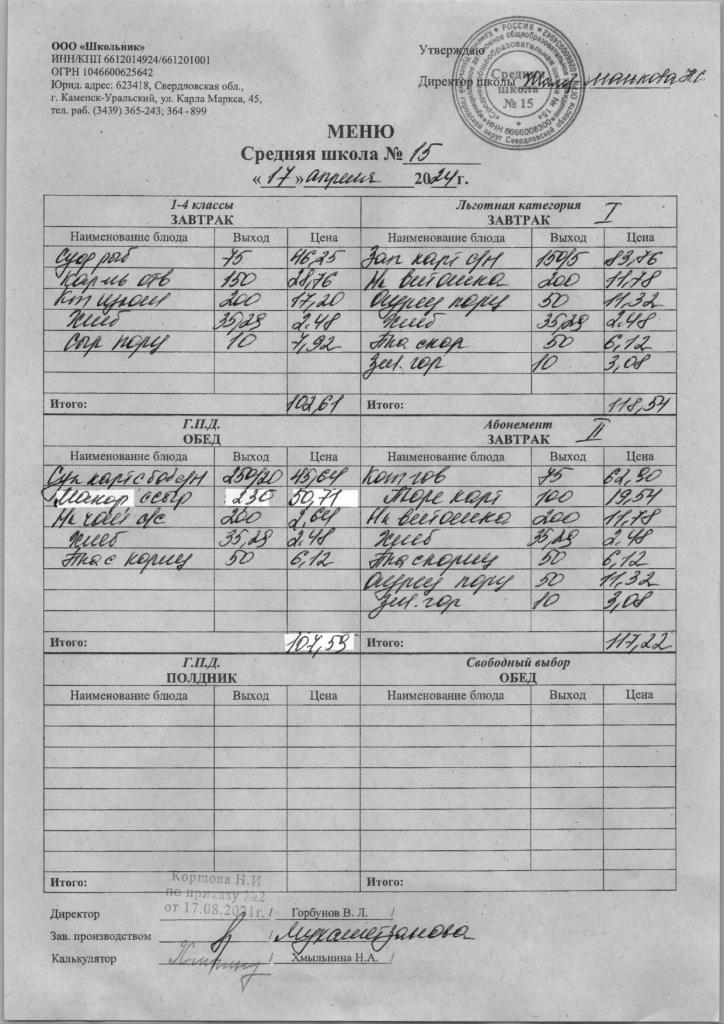 ООО «Школьник»
ИНН/КПП 6612014924/661201001
ОГРН 1046600625642
Юрид. адрес: 623418, Свердловская обл.,
г. Каменск-Уральский, ул. Карла Маркса, 45,
тел. раб. (3439) 365-243; 364-899
Утверждаю
Директор школы
Средняя
школа
№ 15
МЕНЮ
Средняя школа № 15
« 17 » апреля 2024г.
1-4 классы
ЗАВТРАК
Наименование блюда Выход Цена
75 46,25
150 28,76
200 17,20
Хлеб 35,29 2.48
Сыр порц 10 7,92
Итого: 102,61
Льготная категория I
ЗАВТРАК
Наименование блюда Выход Цена
Зап карт с/н 150/5 83,76
Нап витошка 200 11,78
Огурец порц 50 11,32
Хлеб 35,29 2.48
50 6,12
Зел. гор 10 3,08
Итого: 118,54
Г.П.Д.
ОБЕД
Наименование блюда Выход Цена
Суп карт с боб с/н 250/20 45,64
Макар с сыр 230 50,71
200 2,64
Хлеб 35,29 2.48
50 6,12
Итого: 107,59
Абонемент II
ЗАВТРАК
Наименование блюда Выход Цена
Кот гов 75 62,90
Пюре карт 100 19,54
Нап витошка 200 11,78
Хлеб 35,29 2.48
50 6,12
Огурец порц 50 11,32
Зел. гор 10 3,08
Итого: 117,22
Г.П.Д.
ПОЛДНИК
Наименование блюда Выход Цена
Итого:
Свободный выбор
ОБЕД
Наименование блюда Выход Цена
Итого:
Коршова Н.И
по приказу №2
от 17.08.2021г.
Директор / Горбунов В. Л. /
Зав. производством / Мухаметзянова
Калькулятор / Хмыльнина Н.А. /